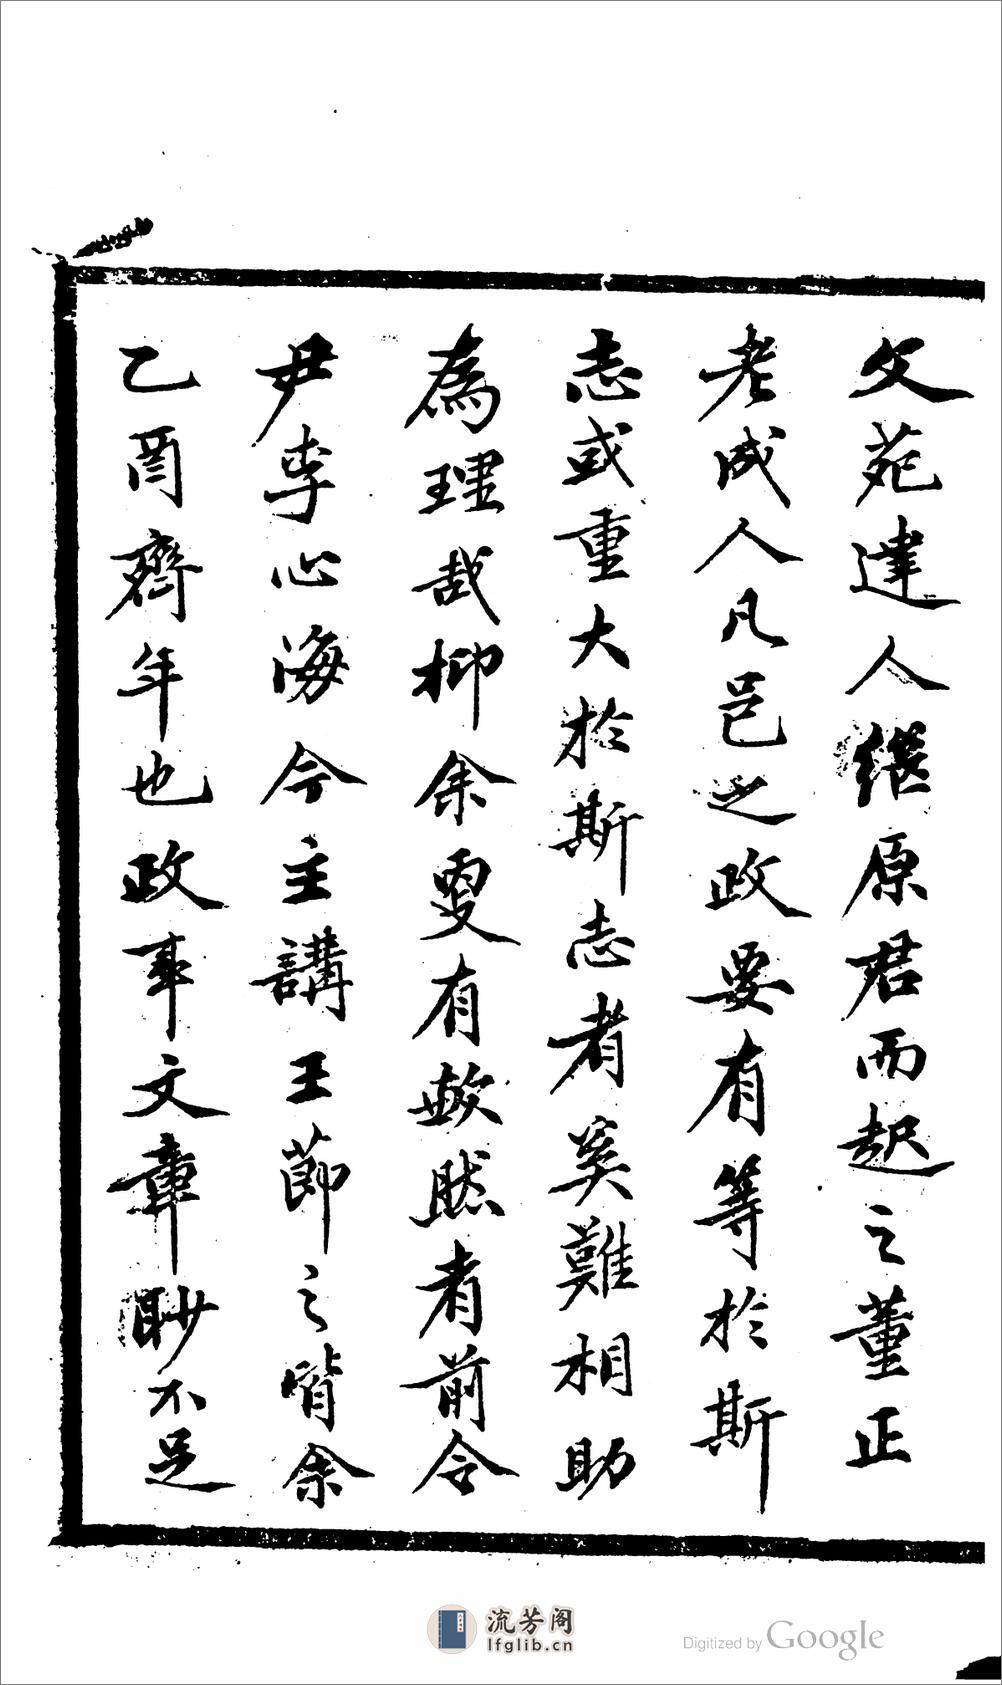 文苑達人繼原君而起之董正
老成人凡邑之政要有等於斯
志或重大於斯志者奚難相助
為理哉抑余更有歉然者前令
尹李心海今主講王莭之皆余
乙酉齊年也政事文章眇不足
流芳阁
lfglib.cn
Digitized by Google